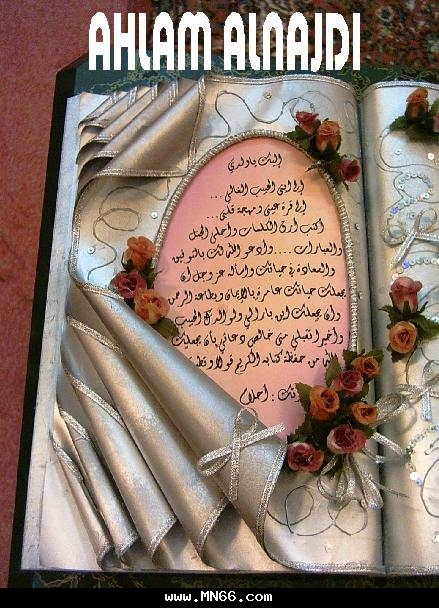 AHLAM ALNAJDI
إليك ياولدي
إلى ابني الحبيب الغالي ...
إلى قرة عيني ومهجة قلبي ...
اكتب أرق الكلمات وأحلى الجمل
والعبارات .... وأدعو الله لك بالتوفيق
والسعادة في حياتك وأسأله عز وجل أن
يجعلك حياتك عامرة بالإيمان وطاعة الرحمن
وأن يجعلك ابن بار لي ولوالدك الحبيب
وأخيرا تقبلي مني خالص دعائي بأن يجعلك
من حفظة كتابه الكريم قولا
: أحلام
www.MN66.com